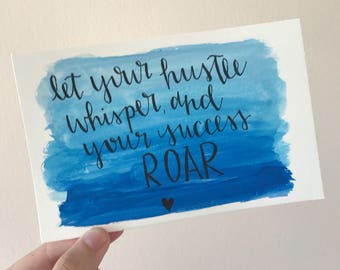 let your hustle
whisper, and
your success
ROAR